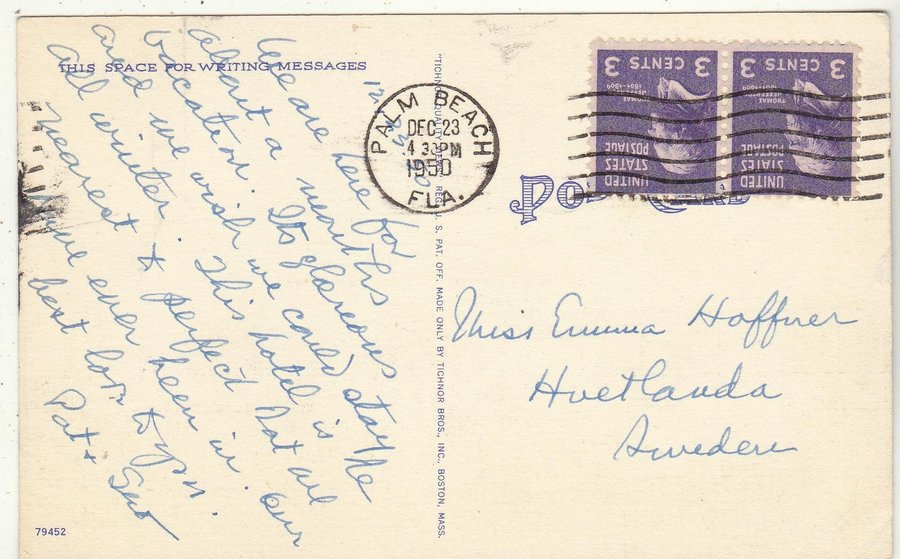 THIS SPACE FOR WRITING MESSAGES
We are here for
about a months
vacation. Its glorious
and we wish we could stay
all winter. This hotel is
nearest to perfect
have ever been in. Our
best love to you.
Pat &
79452
U. S. PAT. OFF. MADE ONLY BY TICHNOR BROS., INC., BOSTON, MASS.
PALM BEACH
DEC 23
4 30PM
1950
FLA.
3 CENTS
THOMAS
JEFFERSON
1801-1809
UNITED
STATES
POSTAGE
3 CENTS
THOMAS
JEFFERSON
1801-1809
UNITED
STATES
POSTAGE
Miss Emma Hoffner
Hvetlanda
Sweden